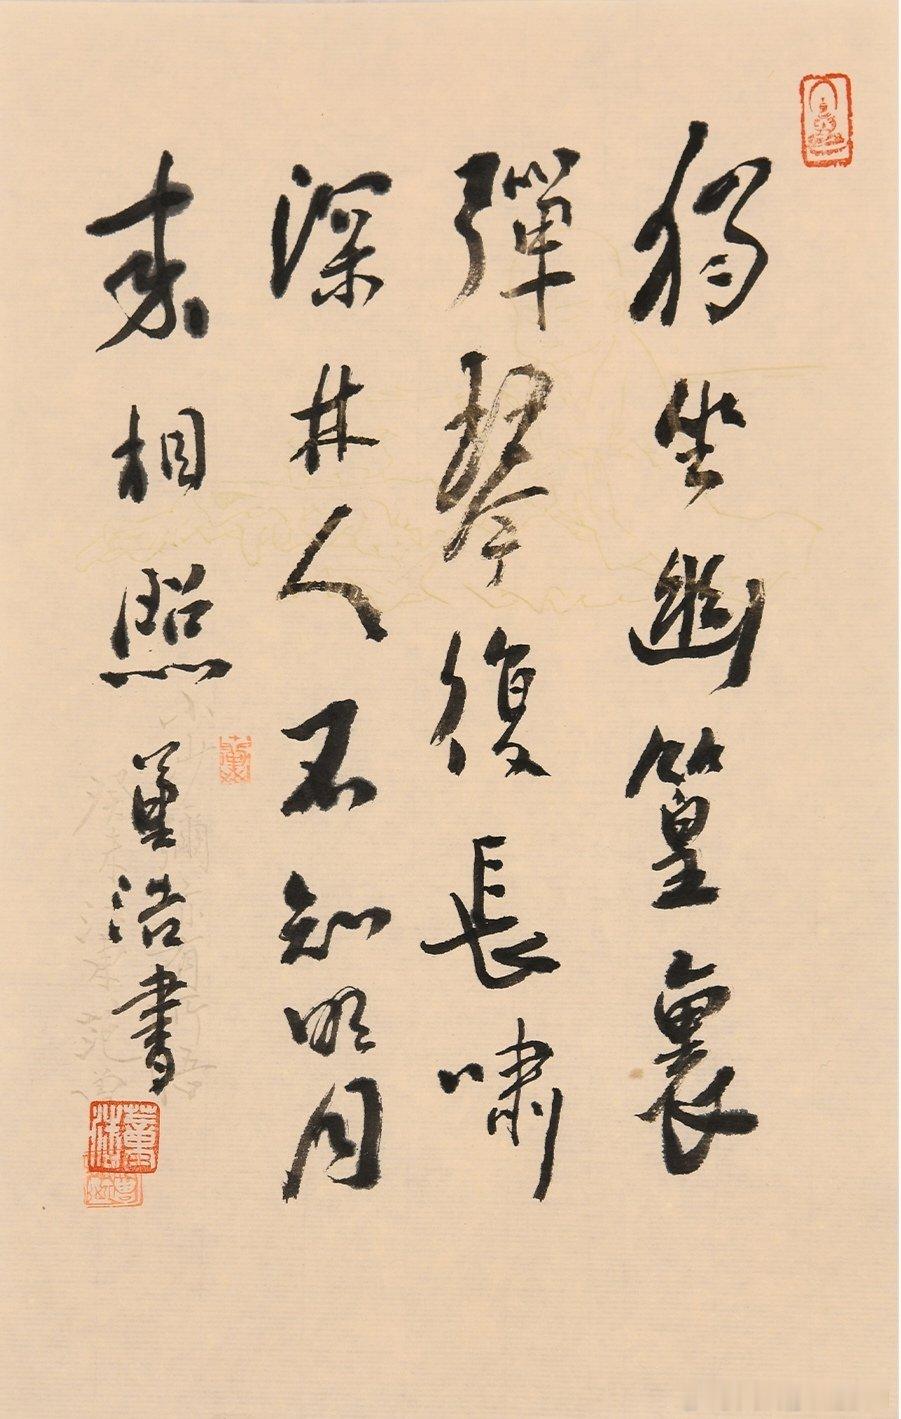 獨坐幽篁裏
彈琴復長嘯
深林人不知明月
来相照
董浩書
董浩